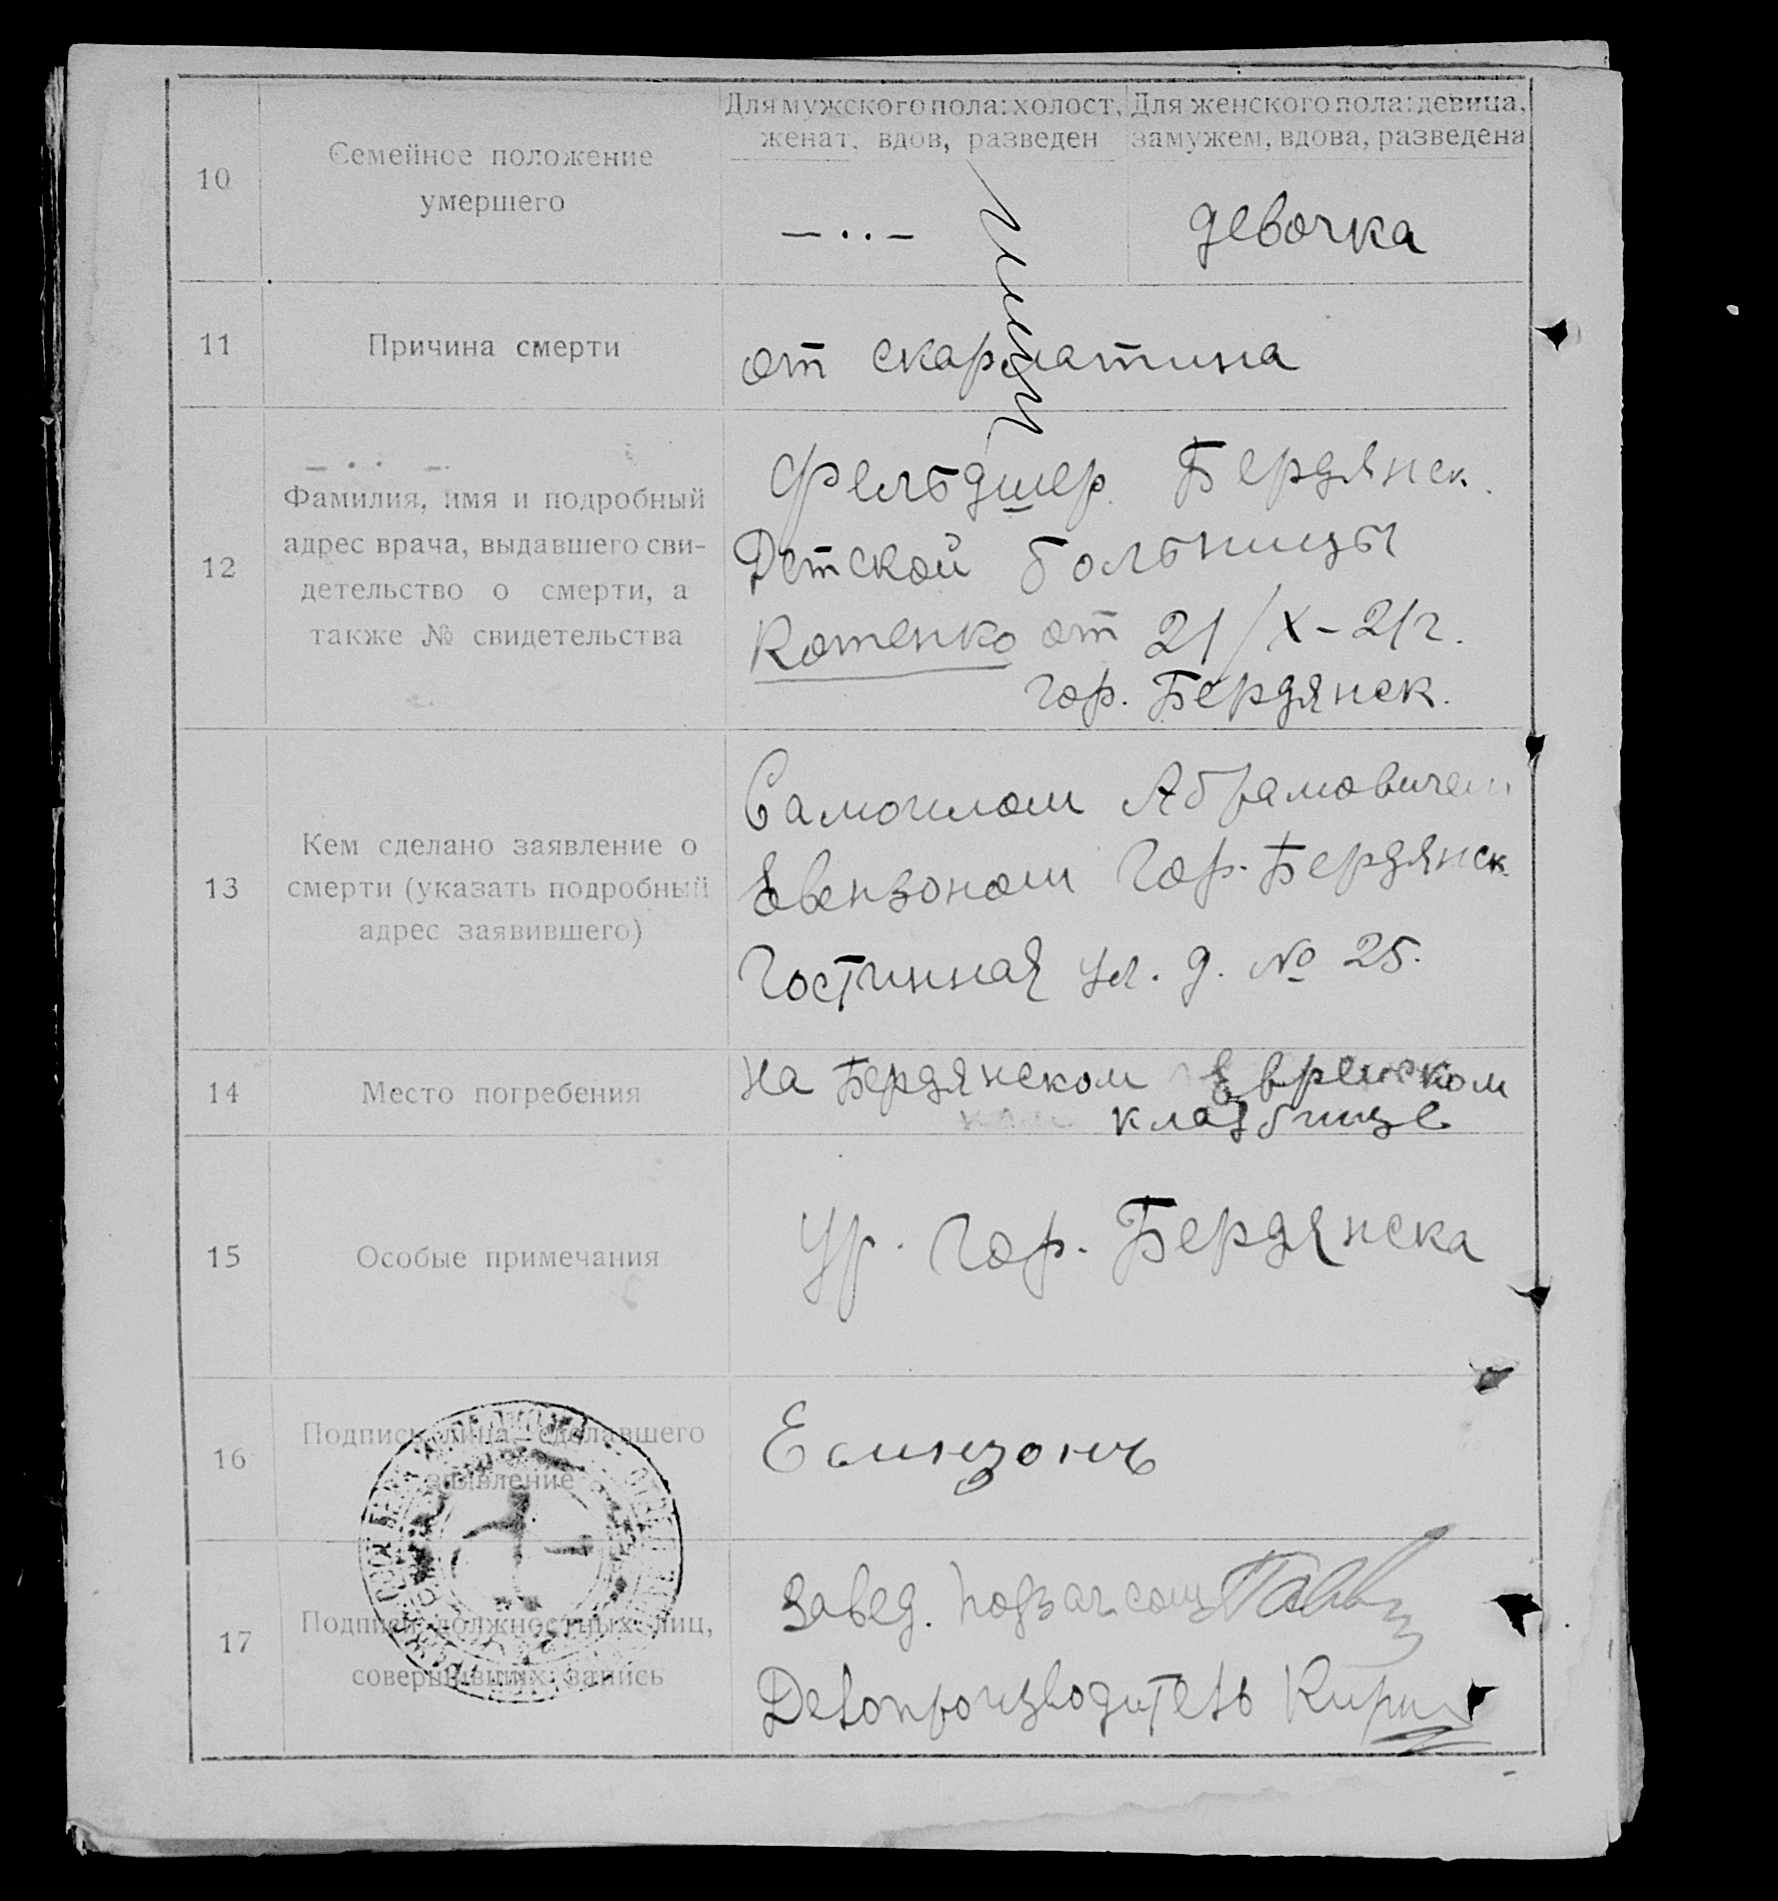 Для мужского пола: холост, женат, вдов, разведен
Для женского пола: девица, замужем, вдова, разведена
10
Семейное положение
умершего
— · · —
девочка
11
Причина смерти
от скарлатина
12
— · · —
Фамилия, имя и подробный
адрес врача, выдавшего сви-
детельство о смерти, а
также № свидетельства
Фельдшер Бердянск.
Детской больницы
Котенко от 21/X–21г.
гор. Бердянск.
13
Кем сделано заявление о
смерти (указать подробный
адрес заявившего)
Самоилом Абрамовичем
Евензоном Гор. Бердянск
Гостинная ул. д. № 25.
14
Место погребения
на Бердянском Еврейском
кладбище
15
Особые примечания
Ур. Гор. Бердянска
16
Подпись лица, сделавшего
заявление
17
Подписи должностных лиц,
совершивших запись
Завед.
Делопроизводитель